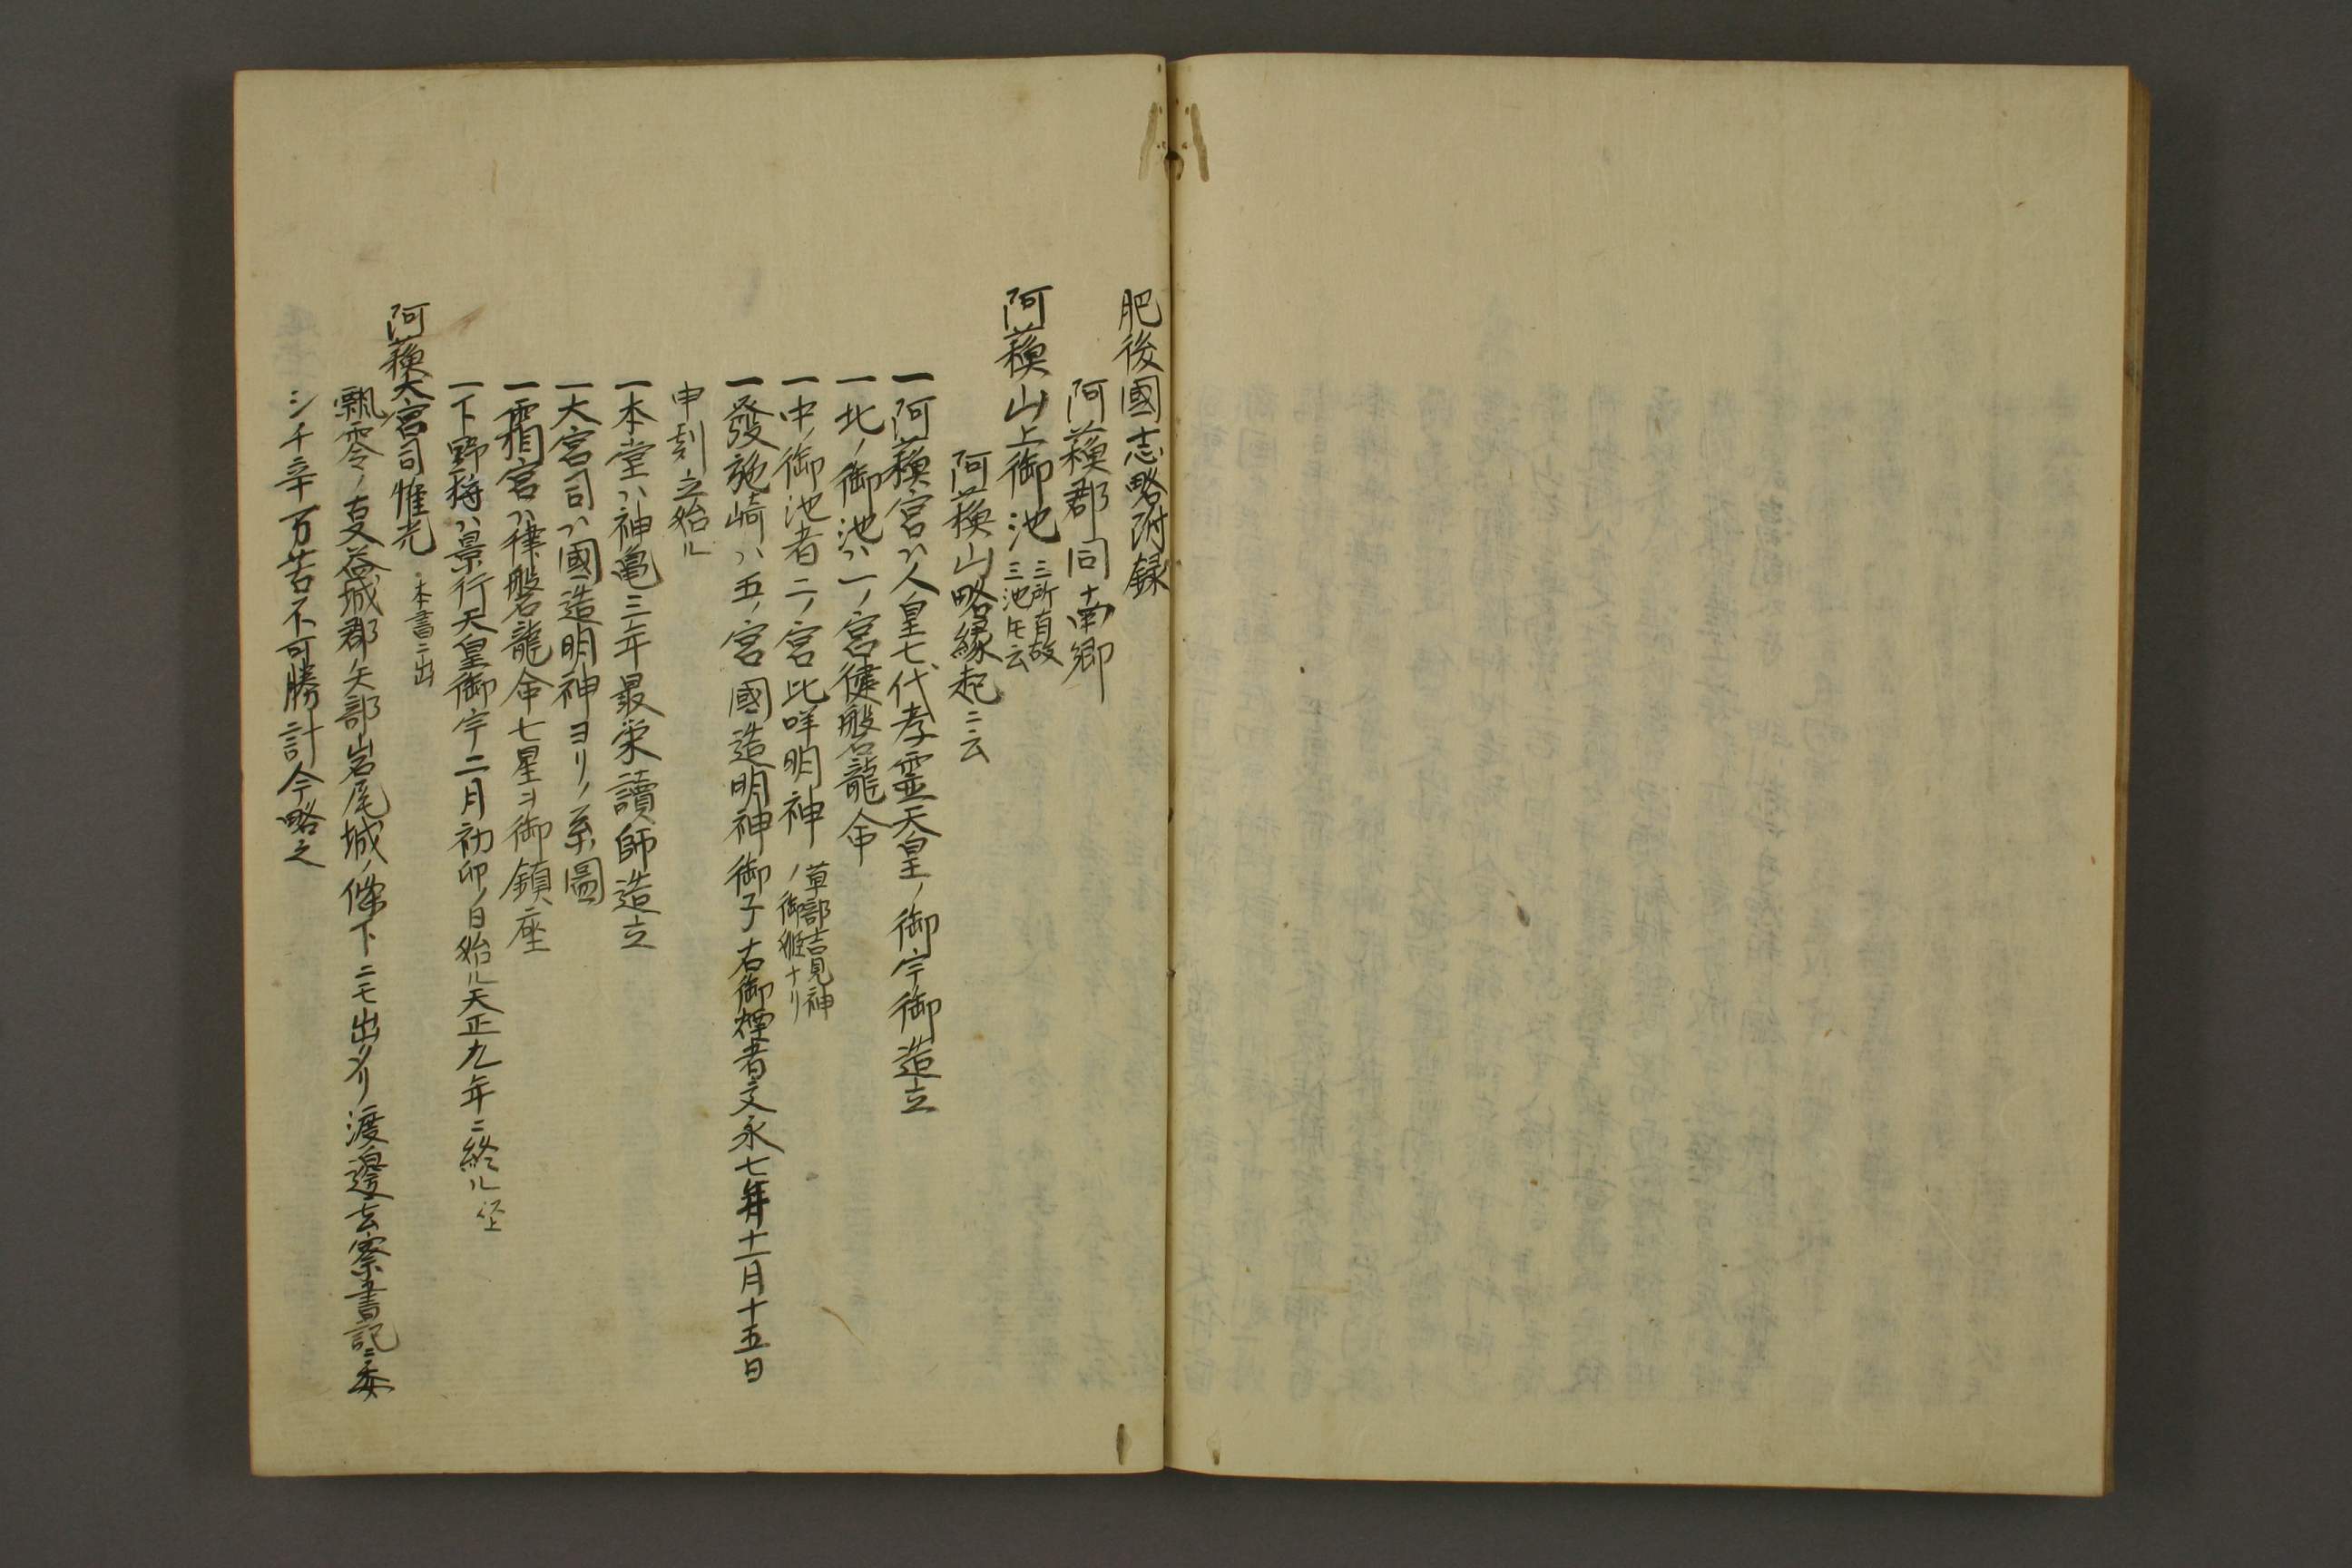 肥後國志略附録
阿蘓郡同南郷
阿蘓山上御池 三所有故
三池トモ云
阿蘓山略縁起ニ云
一阿蘓宮ハ人皇七代孝霊天皇ノ御宇御造立
一北ノ御池ハ一ノ宮健磐龍命
一中ノ御池者二ノ宮比咩明神 草部吉見神
ノ御姫ナリ
一發施崎ハ五ノ宮國造明神御子右御煙者文永七年十一月十五日
申刻立始ル
一本堂ハ神亀三年最栄讀師造立
一大宮司ハ國造明神ヨリノ系圖
一霜宮ハ健磐龍命七星ヲ御鎮座
一下野狩ハ景行天皇御宇二月初卯ノ日始ル天正九年ニ終ル 以上
阿蘓大宮司惟光 本書ニ出
飄零ノ支益城郡矢部岩尾城ノ條下ニモ出タリ渡邊玄察書記ニ委
シ千辛万苦不可勝計今略之